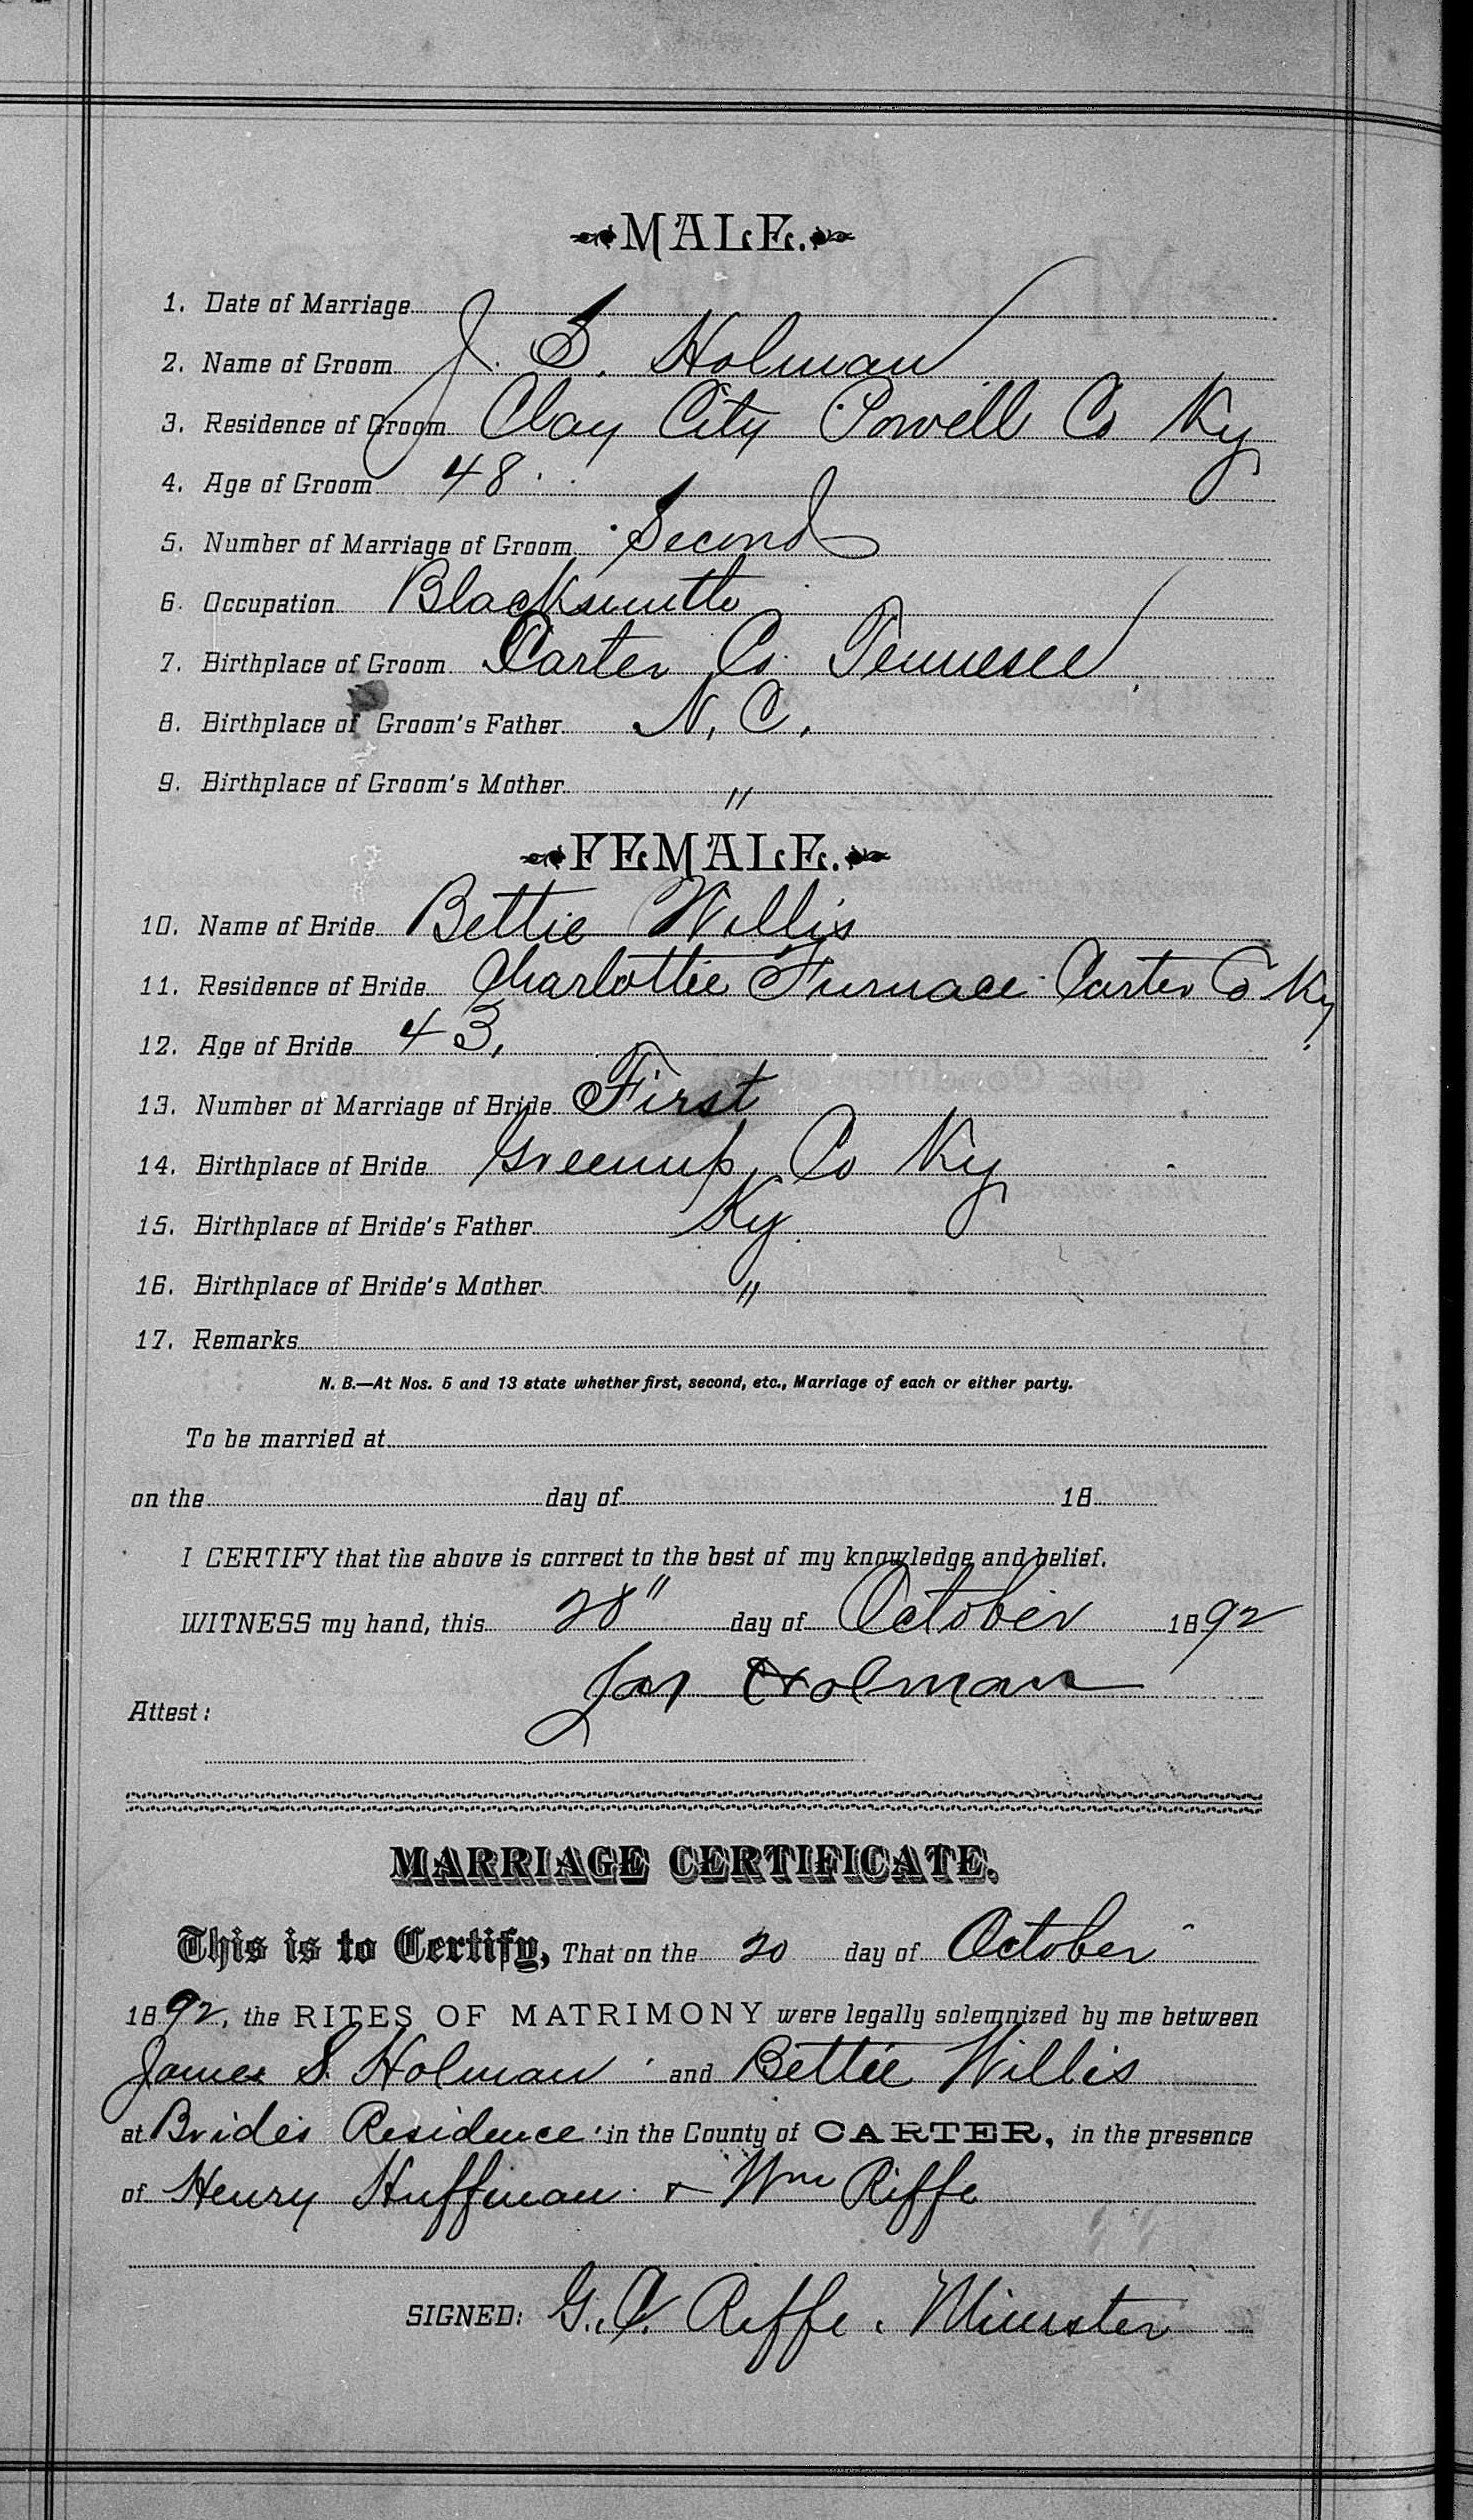 MALE.
1. Date of Marriage
2. Name of Groom J. S. Holman
3. Residence of Groom Clay City Powell Co Ky
4. Age of Groom 48
5. Number of Marriage of Groom Second
6. Occupation Blacksmith
7. Birthplace of Groom Carter Co. Tennesee
8. Birthplace of Groom's Father N. C.
9. Birthplace of Groom's Mother "
FEMALE.
10. Name of Bride Bettie Willis
11. Residence of Bride Charlottie Furnace Carter Co Ky
12. Age of Bride 43,
13. Number of Marriage of Bride First
14. Birthplace of Bride Greenup, Co Ky
15. Birthplace of Bride's Father Ky.
16. Birthplace of Bride's Mother "
17. Remarks
N. B.—At Nos. 5 and 13 state whether first, second, etc., Marriage of each or either party.
To be married at
on the day of 18
I CERTIFY that the above is correct to the best of my knowledge and belief.
WITNESS my hand, this 28" day of October 1892
Jas Holman
Attest:
MARRIAGE CERTIFICATE.
This is to Certify, That on the 20 day of October
1892, the RITES OF MATRIMONY were legally solemnized by me between
James S. Holman and Bettie Willis
at Brides Residence in the County of CARTER, in the presence
of Henry Huffman & Wm Riffe
SIGNED: G. Riffe. Minister